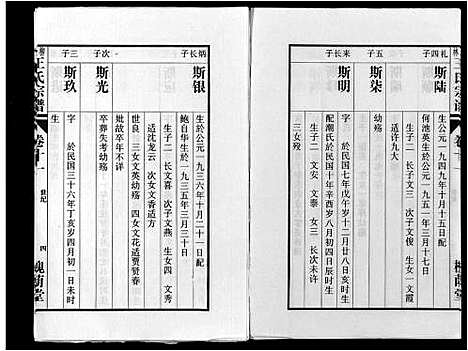 王氏宗谱
卷十一
槐荫堂
礼四子
斯陆
生於公元一九四九年十月十五日配
何池英生於公元一九五一年三月十七日
生子二 长子文三 次子文俊 生女一文霞
五子
斯柒
幼殇
来长子
斯明
字 於民国七年戊午岁十二月廿八日亥时生
配潮氏於民国十年辛酉岁八月初四日辰时生
生子二 文安 文泰 女三 长次未许
三女殁
炳长子
斯银
生於公元一九三六年十月二十一日配
鲍自华生於公元一九三一年三月三十日
生子二 长文喜 次子文燕 生女四 文秀
适沈龙云 次女文香适方
世良 三女文英幼殇 四女文花适贾贤春
次子
斯光
妣故卒年不详
卒葬失考幼殇
三子
斯玖
字 於民国三十六年丁亥岁四月初一日未时
生
王氏宗谱
卷十一
世纪
四
槐荫堂